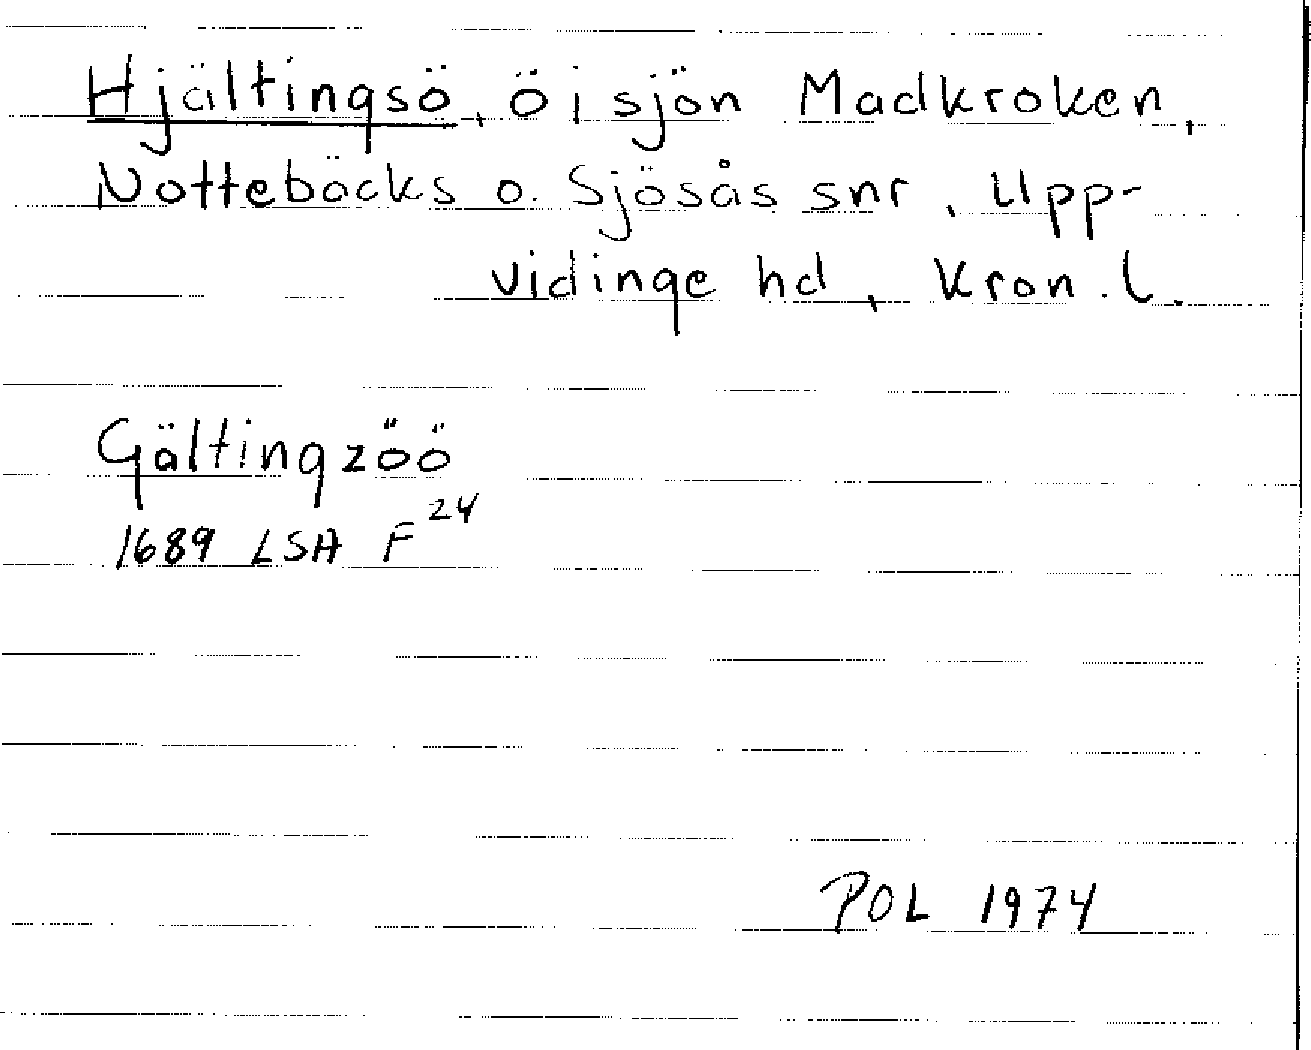 Hjältingsö, ö i sjön Madkroken,
Nottebäcks o. Sjösås snr, Upp-
vidinge hd, Kron. l.
Gältingzöö
1689 LSA F24
POL 1974